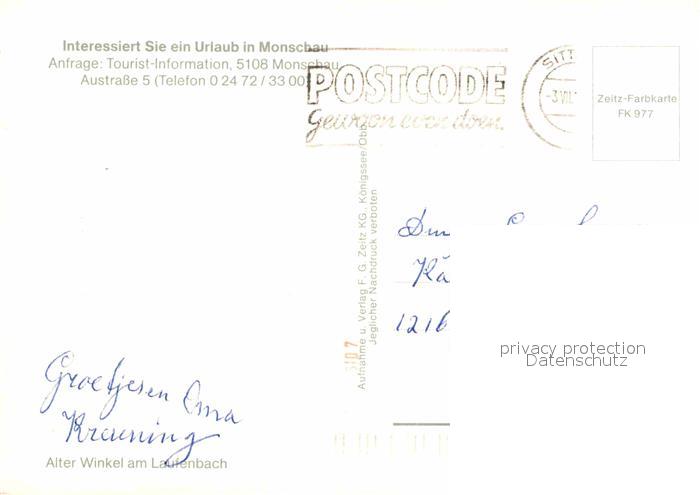 Interessiert Sie ein Urlaub in Monschau
Anfrage: Tourist-Information, 5108 Monschau
Austraße 5 (Telefon 0 24 72 / 33 00)
POSTCODE
Gewoon even doen.
SITT
-3.VII.
Zeitz-Farbkarte
FK 977
Aufnahme u. Verlag F. G. Zeitz KG., Königssee/Obb.
Jeglicher Nachdruck verboten
1216
privacy protection
Datenschutz
Groetjes en Oma
Alter Winkel am Laufenbach